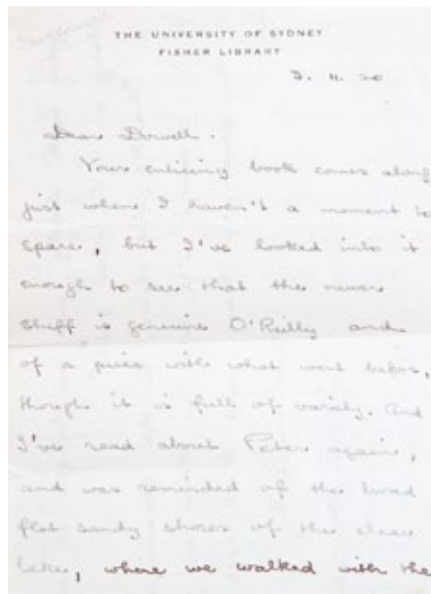 THE UNIVERSITY OF SYDNEY
FISHER LIBRARY
Dear Dowell.
Your enticing book comes along
just when I haven't a moment to
spare, but I've looked into it
enough to see that the newer
stuff is genuine O'Reilly and
of a piece with what went before,
though it is full of variety. And
I've read about Peter again,
and was reminded of the broad
flat sandy shores of the clear
lake, where we walked with the